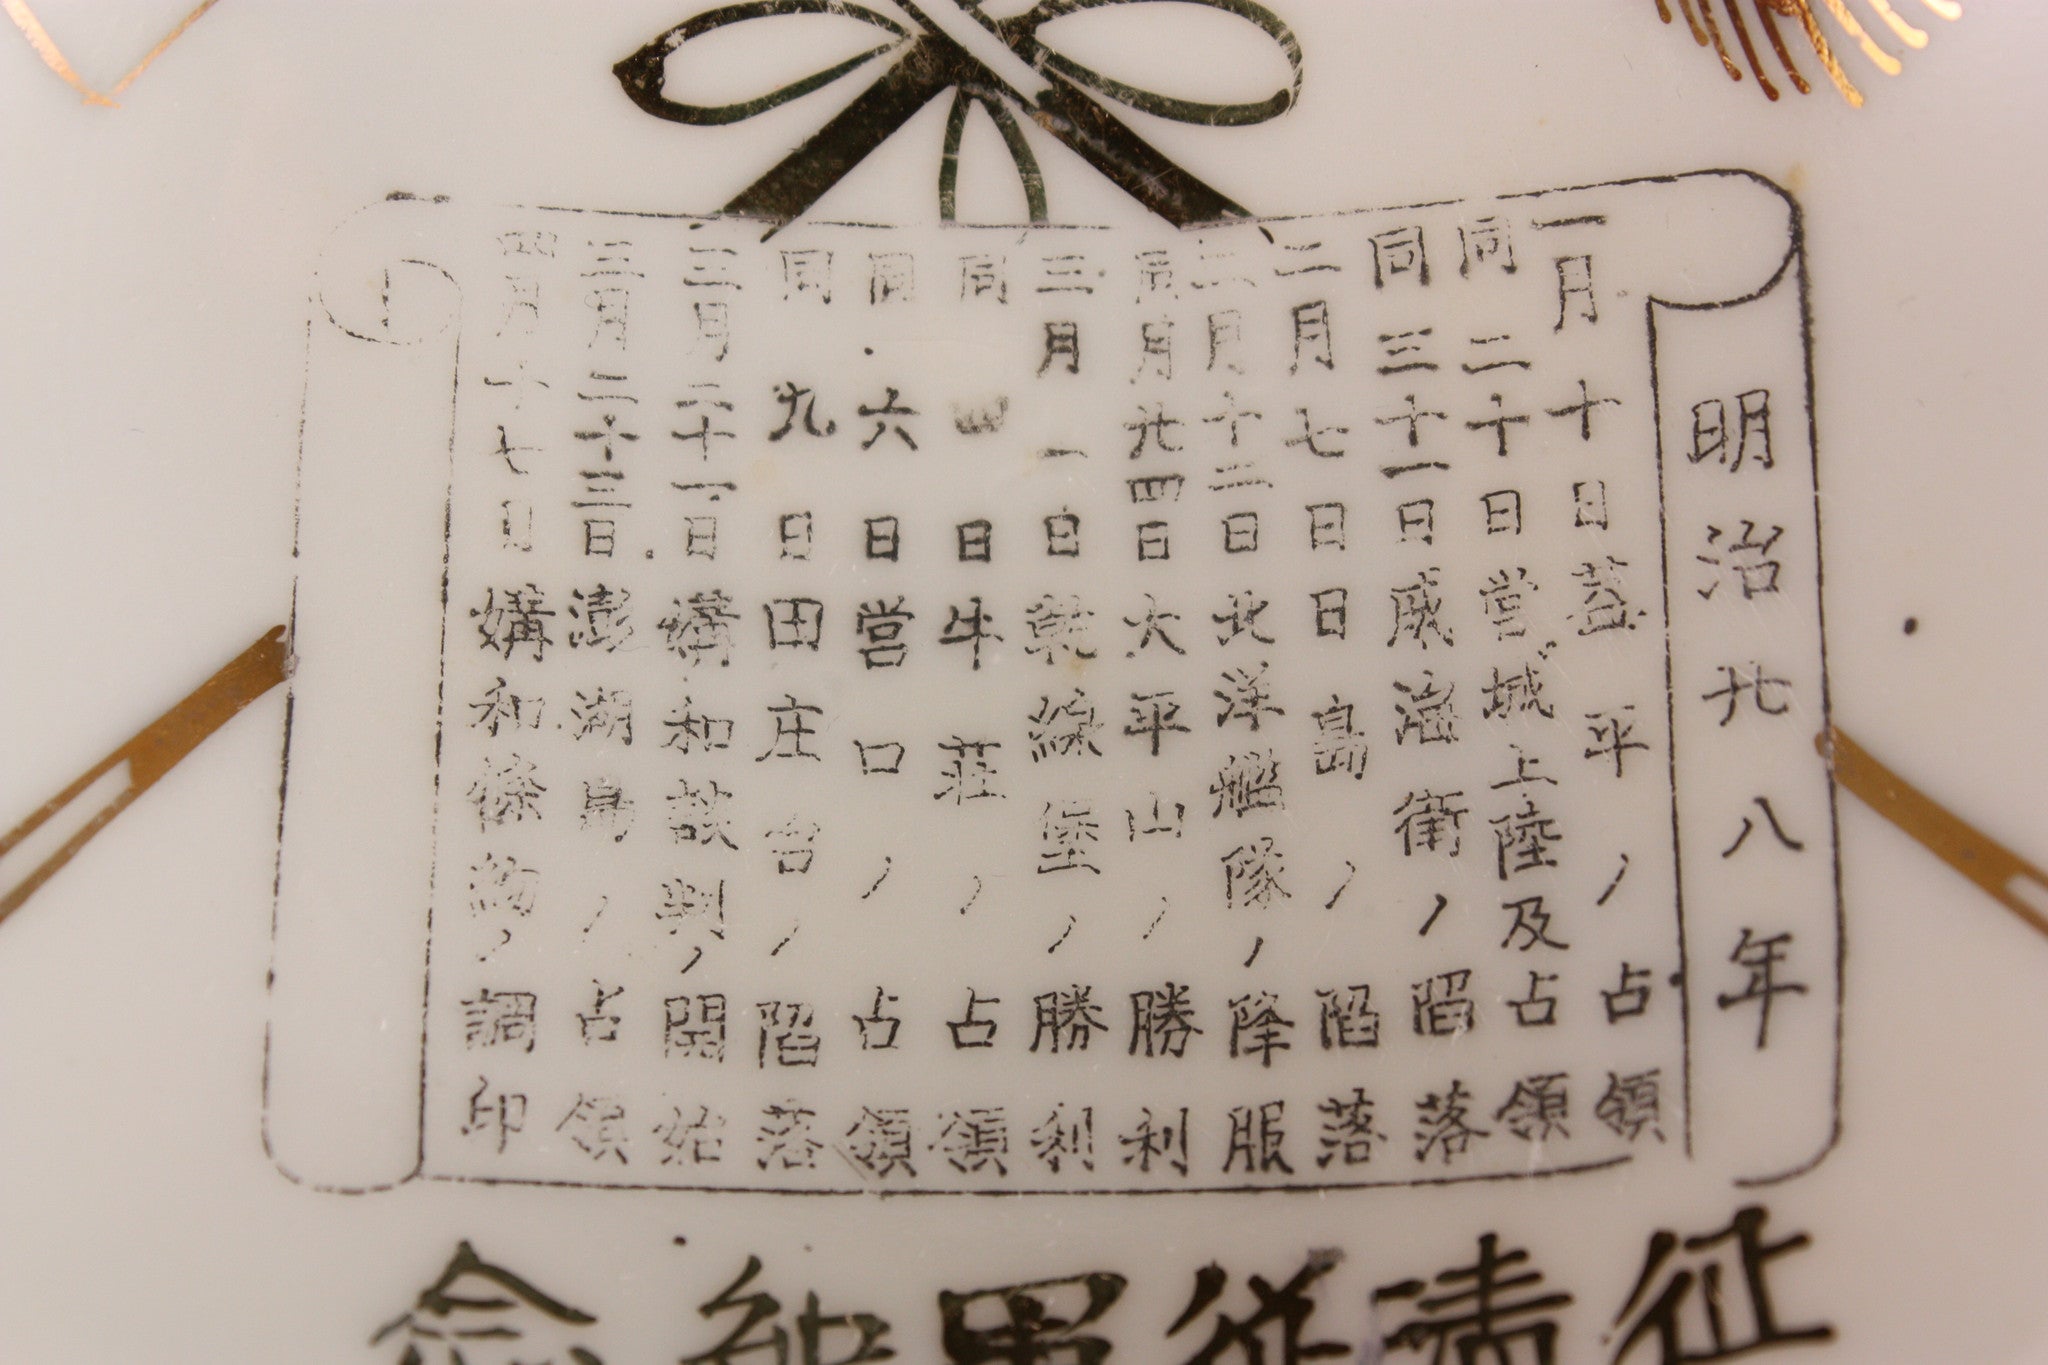 明治廿八年
一月十日蓋平ノ占領
同二十日営城上陸及占領
同三十一日威海衛ノ陷落
二月七日日島ノ陷落
二月十二日北洋艦隊ノ降服
同月廿四日大平山ノ勝利
三月一日乾線堡ノ勝利
同四日牛荘ノ占領
同六日営口ノ占領
同九日田庄台ノ陷落
三月二十一日媾和談判ノ開始
三月二十三日澎湖島ノ占領
四月十七日媾和條約ノ調印
征清従軍紀念